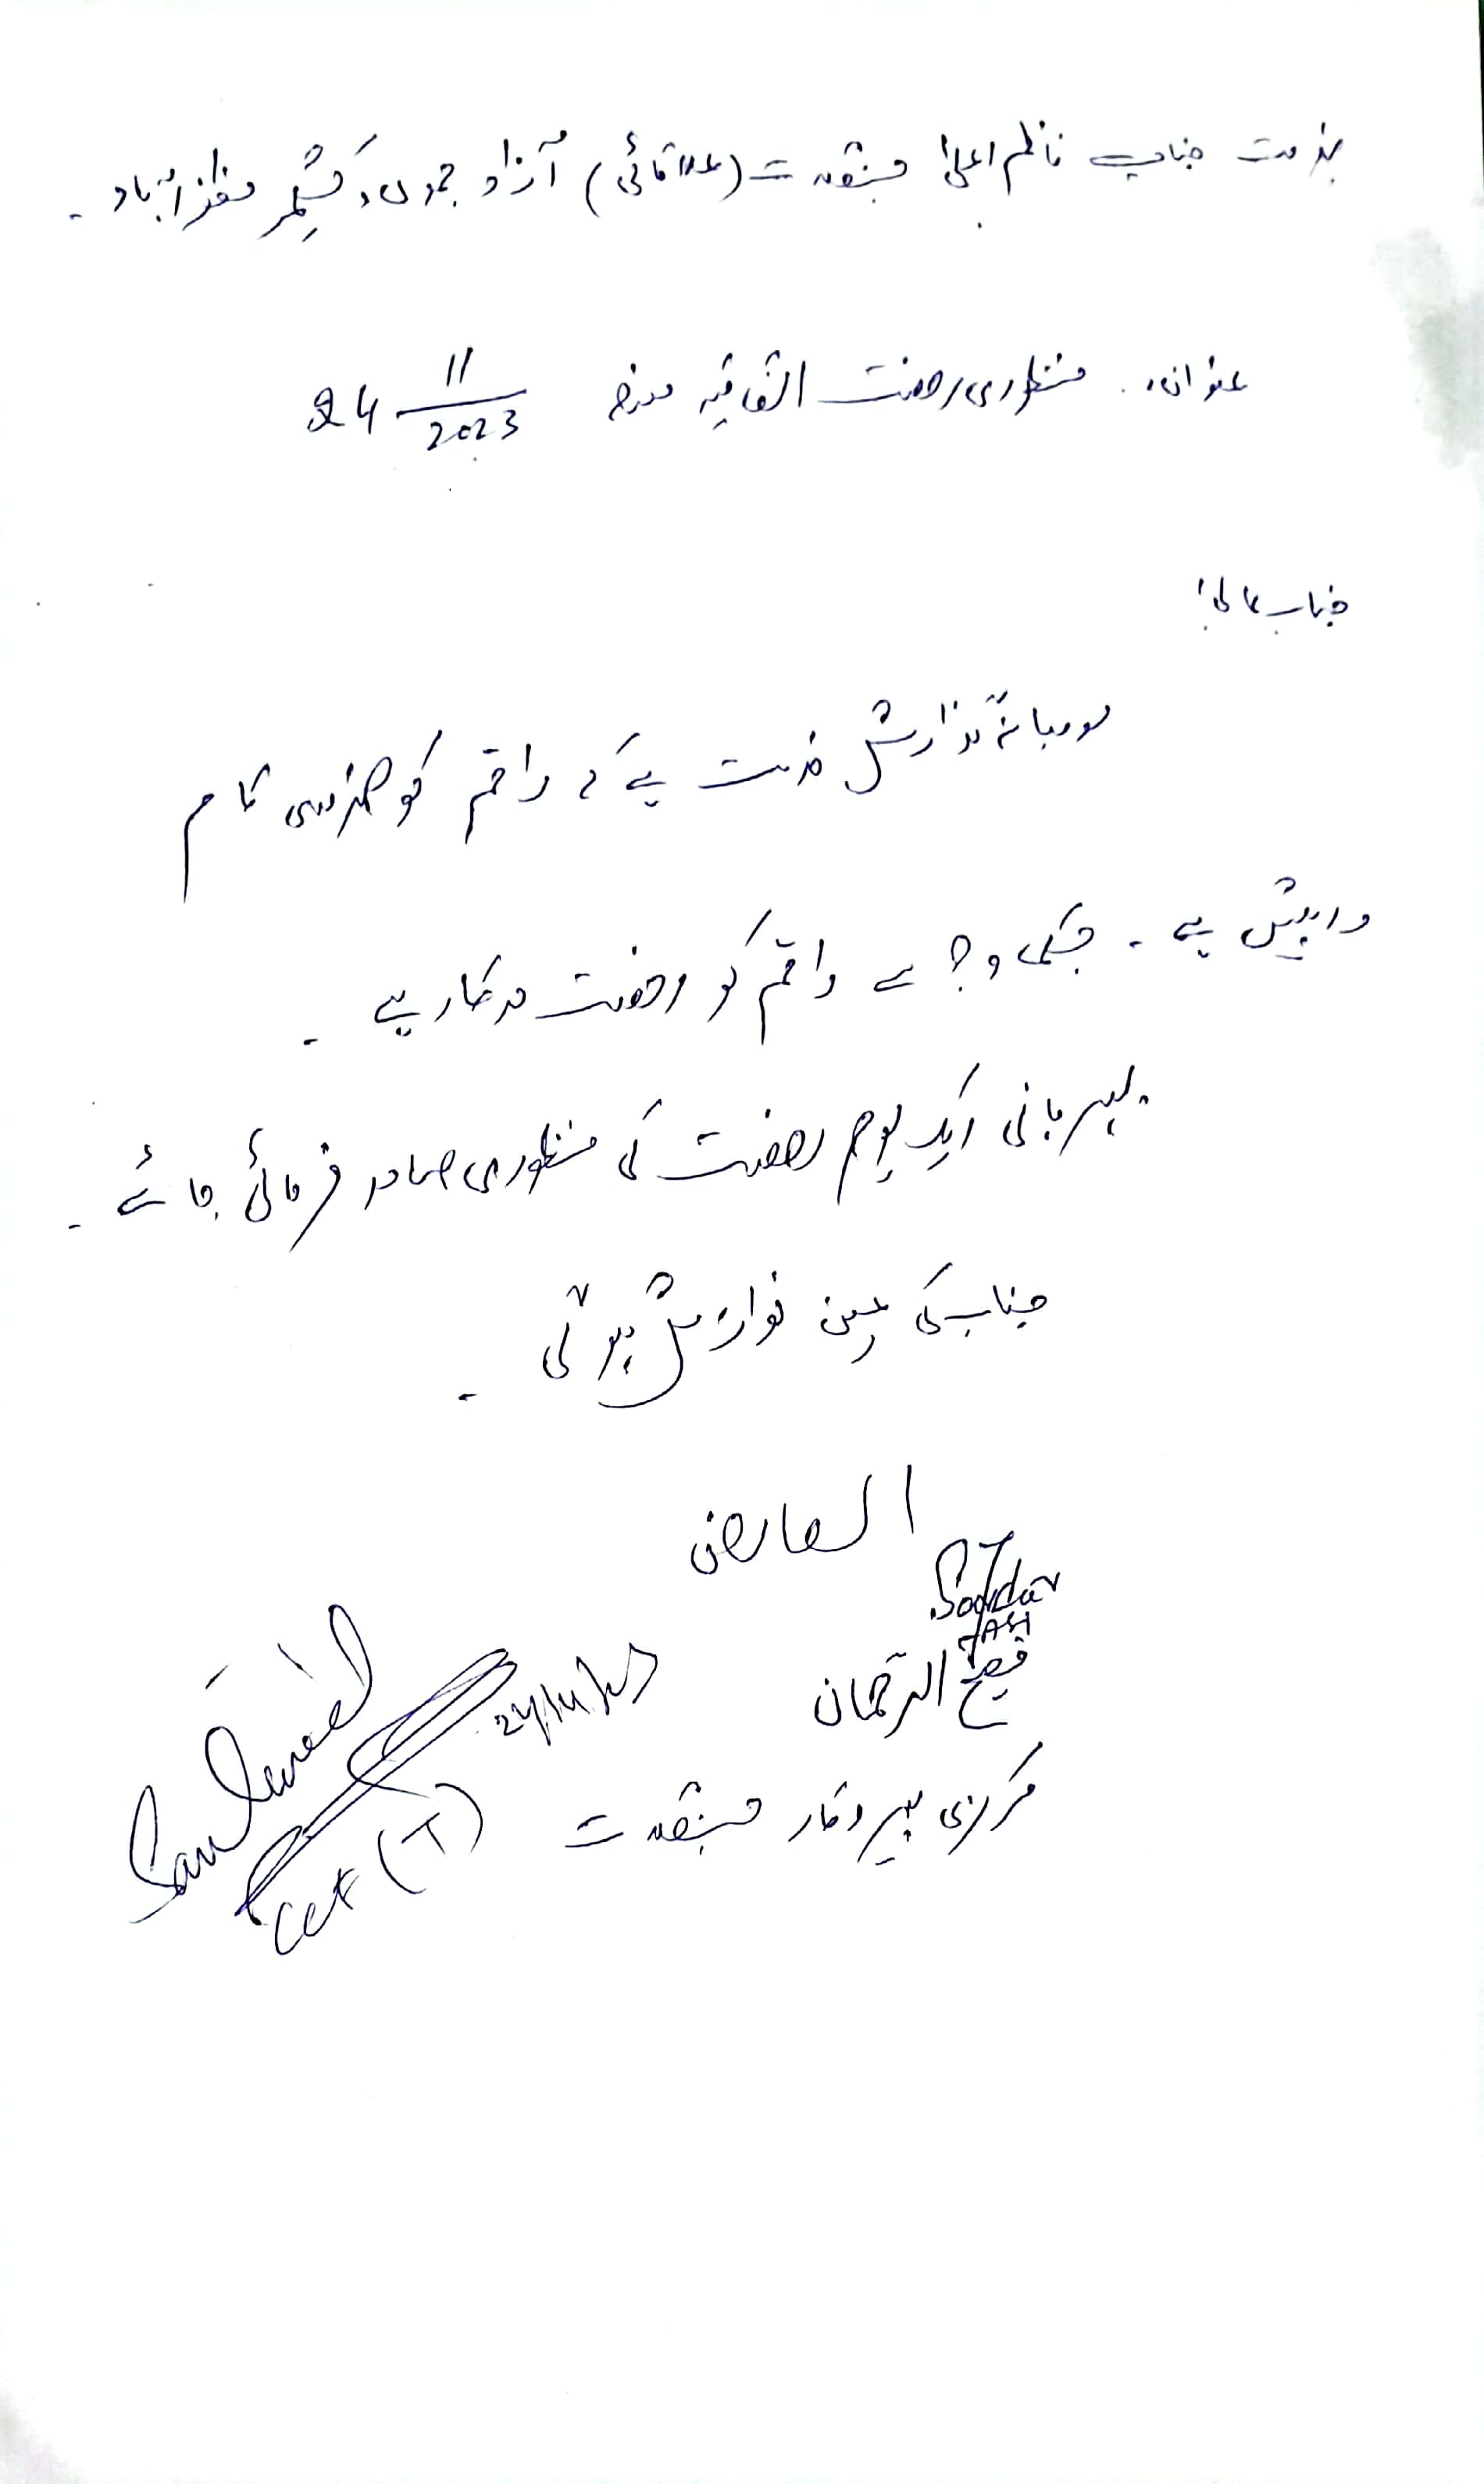 بخدمت جناب ناظم اعلیٰ منصوبہ (علاقائی) آزاد جموں و کشمیر مظفرآباد۔
عنوان:۔ منظوری رخصت اتفاقیہ مورخہ 24 11/2023
جناب عالی!
مودبانہ گذارش خدمت ہے کہ راقم کو ضروری کام
درپیش ہے۔ جسکی وجہ سے راقم کو رخصت درکار ہے۔
بمہربانی ایک یوم رخصت کی منظوری صادر فرمائی جائے۔
جناب کی عین نوازش ہو گی۔
العارض
فصیح الرحمان
مرکزی پیروکار
Sanctioned
CCF (T)